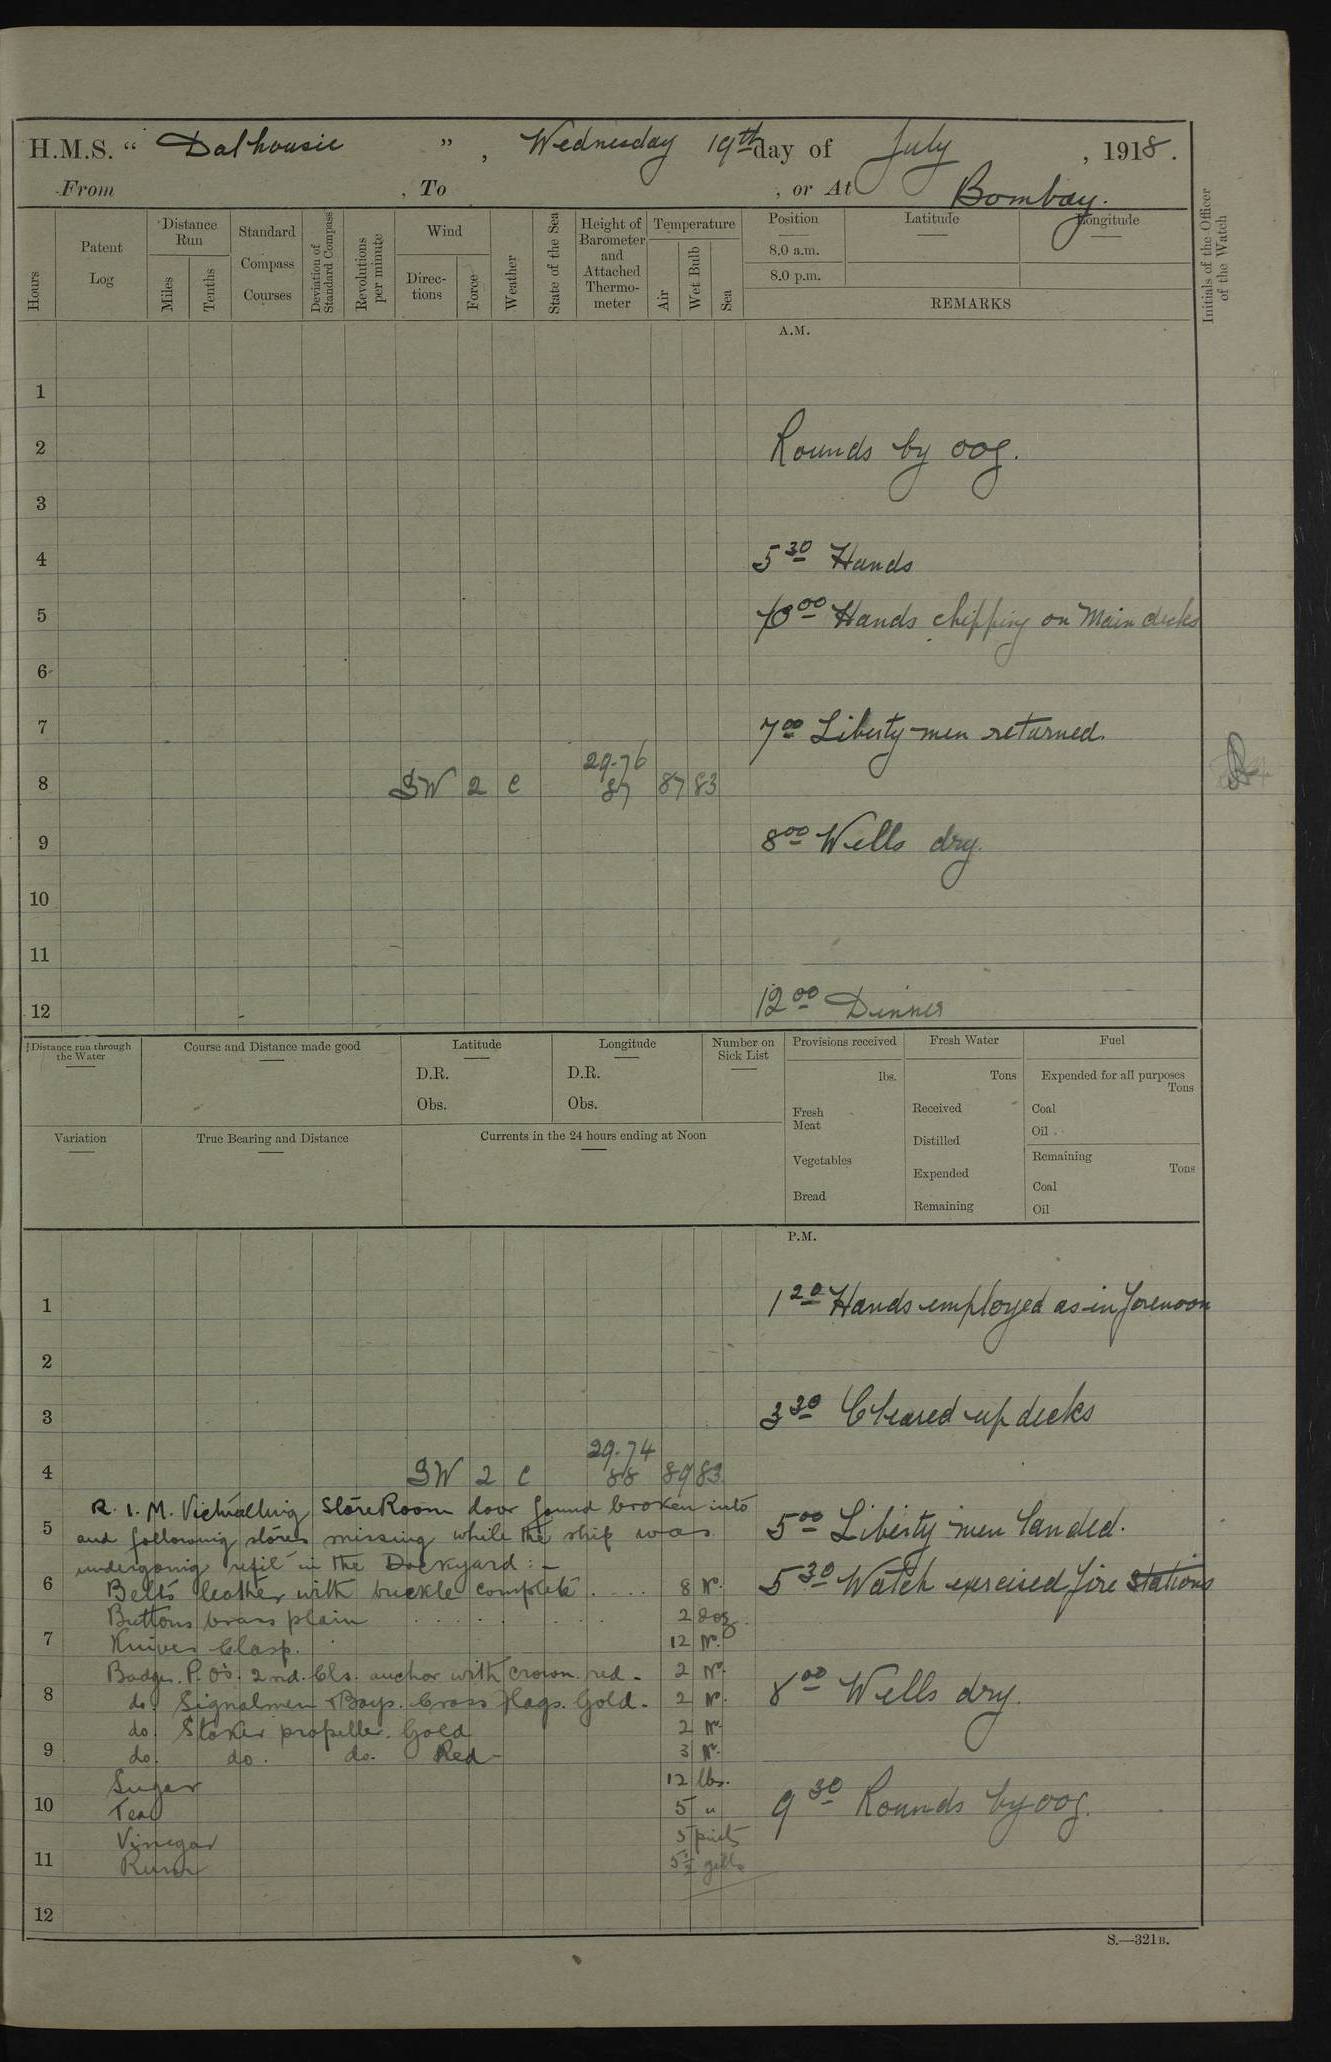 H.M.S. “ Dalhousie ” , Wednesday 19th day of July , 1918 .
From , To , or At Bombay.
Hours
Patent Log
Distance Run
Miles
Tenths
Standard Compass Courses
Deviation of Standard Compass
Revolutions per minute
Wind
Directions
Force
Weather
State of the Sea
Height of Barometer and Attached Thermometer
Temperature
Air
Wet Bulb
Sea
Position
8.0 a.m.
8.0 p.m.
Latitude
Longitude
REMARKS
Initials of the Officer of the Watch
A.M.
1
2 Rounds by OOG.
3
4 5 30 Hands
5 00 Hands chipping on Main decks
6
7 7 00 Liberty men returned.
29.76
8 SW 2 c 87 87 83
9 8 00 Wells dry.
10
11
12 12 00 Dinner
Distance run through the Water
Course and Distance made good
Latitude
D.R.
Obs.
Longitude
D.R.
Obs.
Number on Sick List
Provisions received
lbs.
Fresh Meat
Vegetables
Bread
Fresh Water
Tons
Received
Distilled
Expended
Remaining
Fuel
Expended for all purposes
Tons
Coal
Oil
Remaining
Tons
Coal
Oil
Variation
True Bearing and Distance
Currents in the 24 hours ending at Noon
P.M.
1 1 20 Hands employed as in forenoon
2
3 3 30 Cleared up decks
29.74
4 SW 2 c 88 89 83
R.I.M. Victualling Store Room door found broken into
5 and following stores missing while the ship was
5 00 Liberty men landed.
undergoing refit in the Dockyard :-
6 Belts leather with buckle complete .... 8 No.
5 30 Watch exercised fire stations
Buttons brass plain ..... 2 doz.
7 Knives Clasp. 12 No.
Badges. P.O's. 2nd. Cls. anchor with crown red - 2 No.
8 do. Signalmen & Boys. Cross flags. Gold - 2 No.
8 00 Wells dry.
do. Stoker propeller. Gold 2 No.
9 do. do. do. Red - 3 No.
Sugar 12 lbs.
10 Tea 5 "
9 30 Rounds by OOG.
Vinegar 5 pints
11 Rum 5½ gills
12
S.—321B.